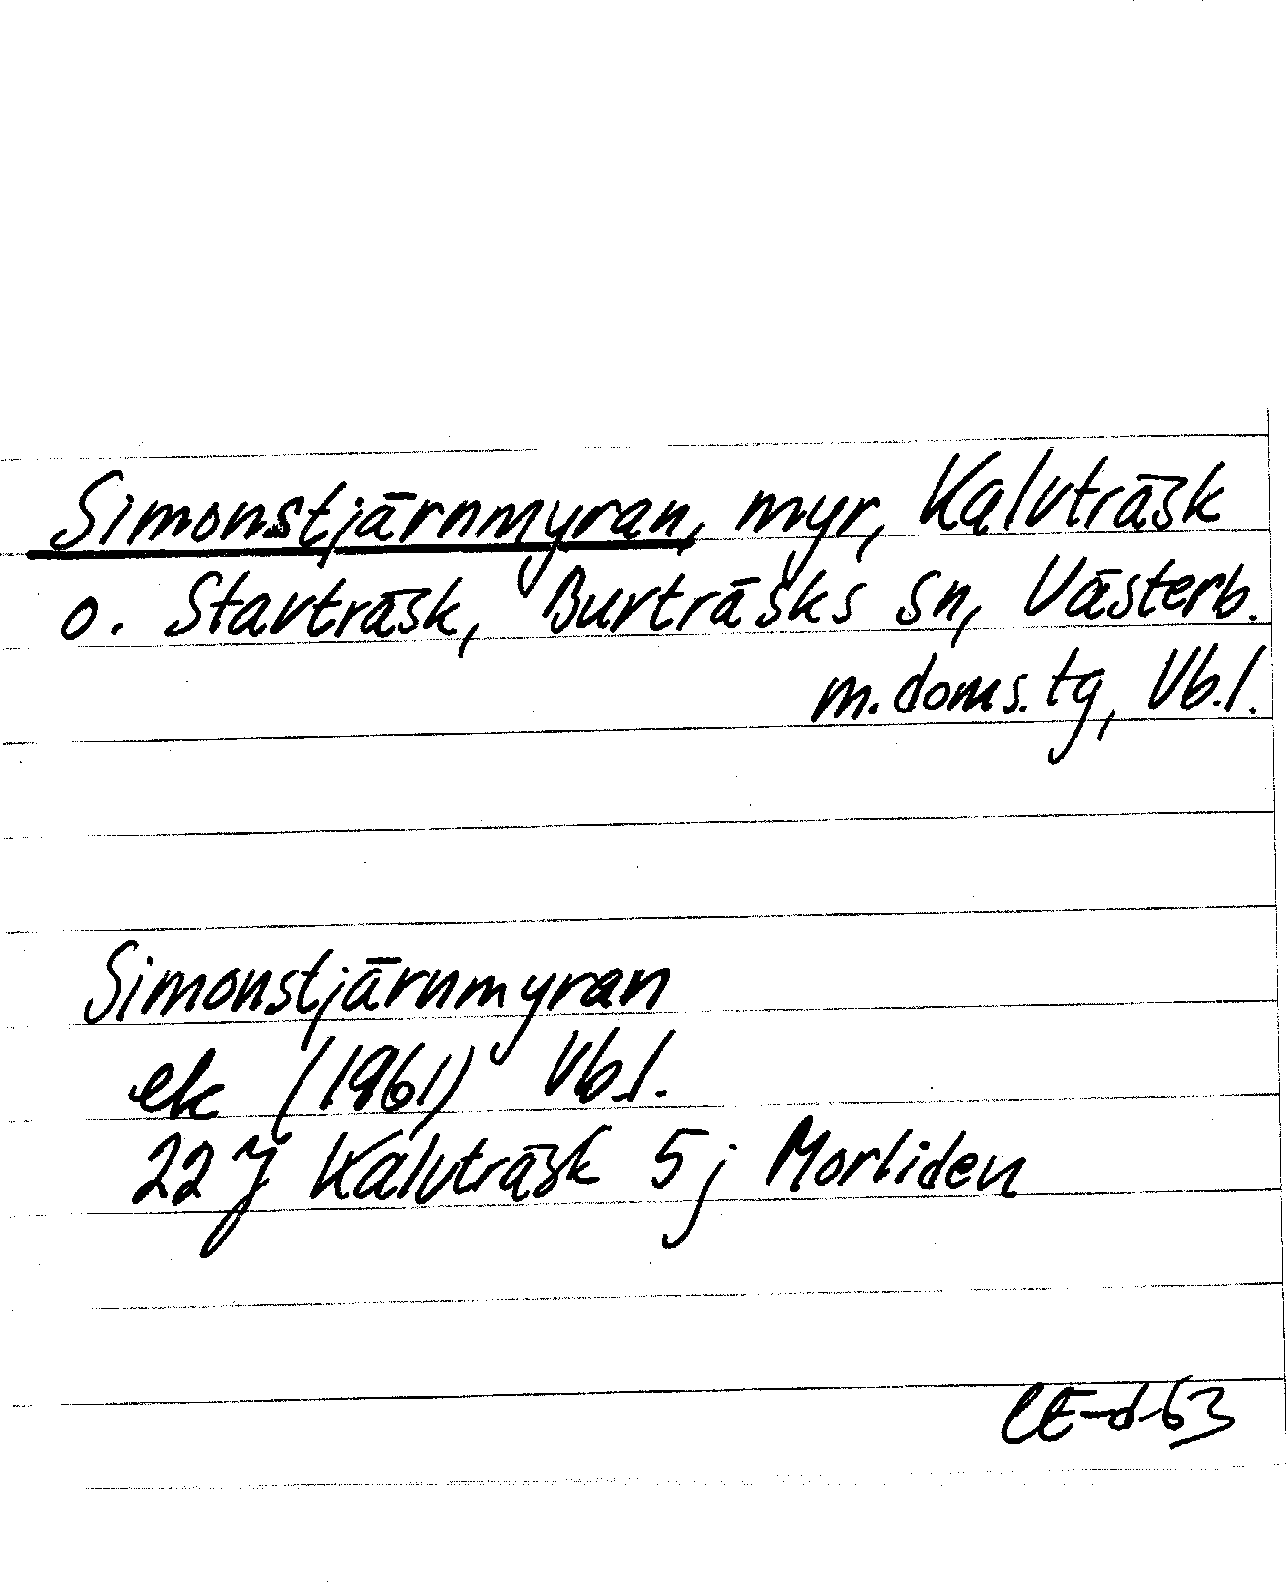 Simonstjärnmyran, myr, Kalvträsk
o. Stavträsk, Burträsks sn, Västerb.
m.doms.tg, Vb.l.
Simonstjärnmyran
ek (1961) Vb.l.
22J Kalvträsk 5j Morliden
CE-d-63